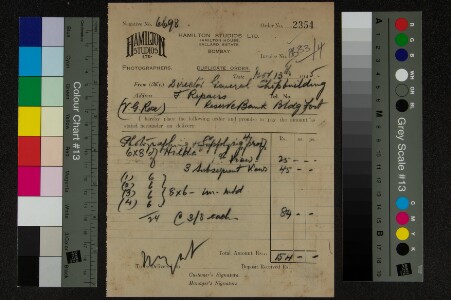 Negative No. 6698
Order No. 2354
HAMILTON STUDIOS LTD.
HAMILTON HOUSE,
BALLARD ESTATE,
BOMBAY
HAMILTON
STUDIOS
LTD.
PHOTOGRAPHERS.
DUPLICATE ORDER
Date Nov 13th
From (Mr.) Director General Shipbuilding
& Repairs
Address
Reserve Bank Bldg Fort
I hereby place the following order and promise to pay the amount
stated hereunder on delivery
Photographing & Supplying
6x8
Views 25 - -
3 Subsequent Views 45 - -
(1) 6
(2) 6
(3) 6 8x6 in. mtd
(4) 6
24 @ 3/8 each - 84 - -
Total Amount Rs. 154 - -
Deposit Received Rs.
Customer's Signature
Manager's Signature
Colour Chart #13
Grey Scale #13